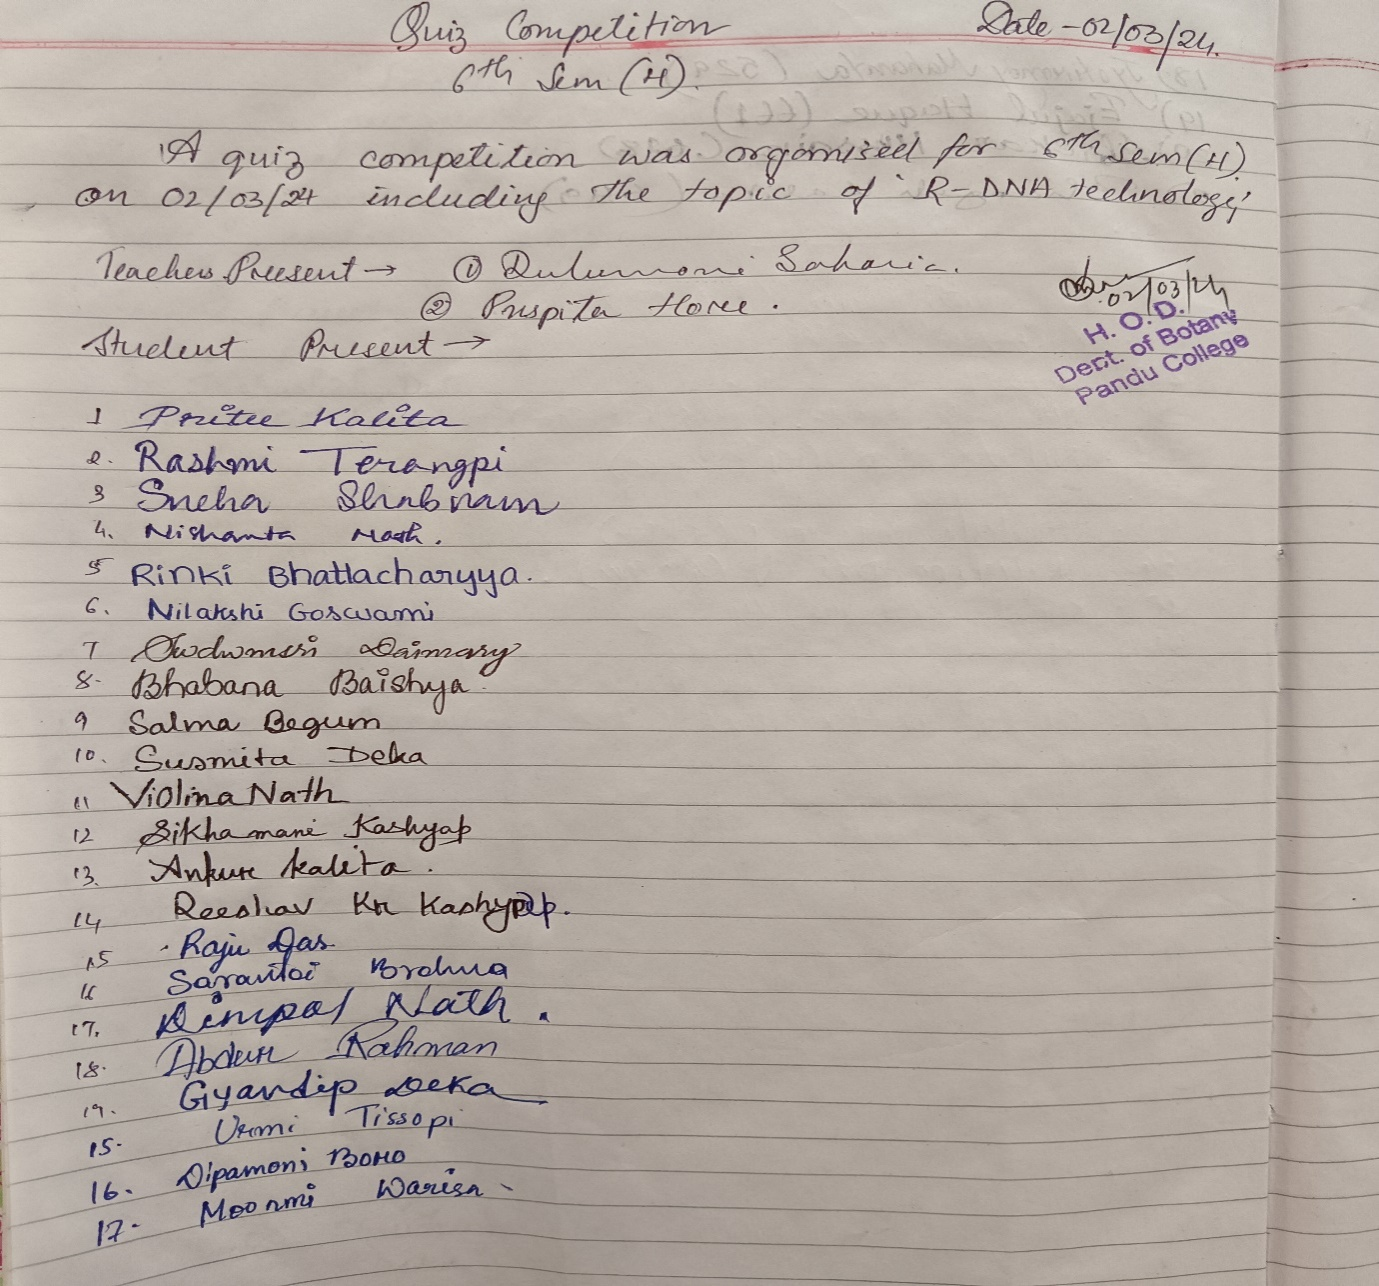 Quiz Competition Date - 02/03/24.
6th Sem (H).
A quiz competition was organised for 6th Sem (H)
on 02/03/24 including the topic of R-DNA technology,
Teachers Present → ① Dulumoni Saharia.
② Puspita Hore.
02/03/24
H. O. D.
Dept. of Botany
Pandu College
Student Present →
1 Pritee Kalita
2. Rashmi Terangpi
3 Sneha Shabnam
4. Nishanta Nath.
5 Rinki Bhattacharyya.
6. Nilakshi Goswami
7 Daimary
8. Bhabana Baishya
9 Salma Begum
10. Susmita Deka
11 Violina Nath
12 Sikhamani Kashyap
13. Ankur Kalita.
14 Reeshav Kr Kashyap.
15 Raju Das
16 Brahma
17. Dimpal Nath.
18. Abdur Rahman
19. Gyandip Deka
15. Urmi Tissopi
16. Dipamoni Boro
17. Moonmi Warisa